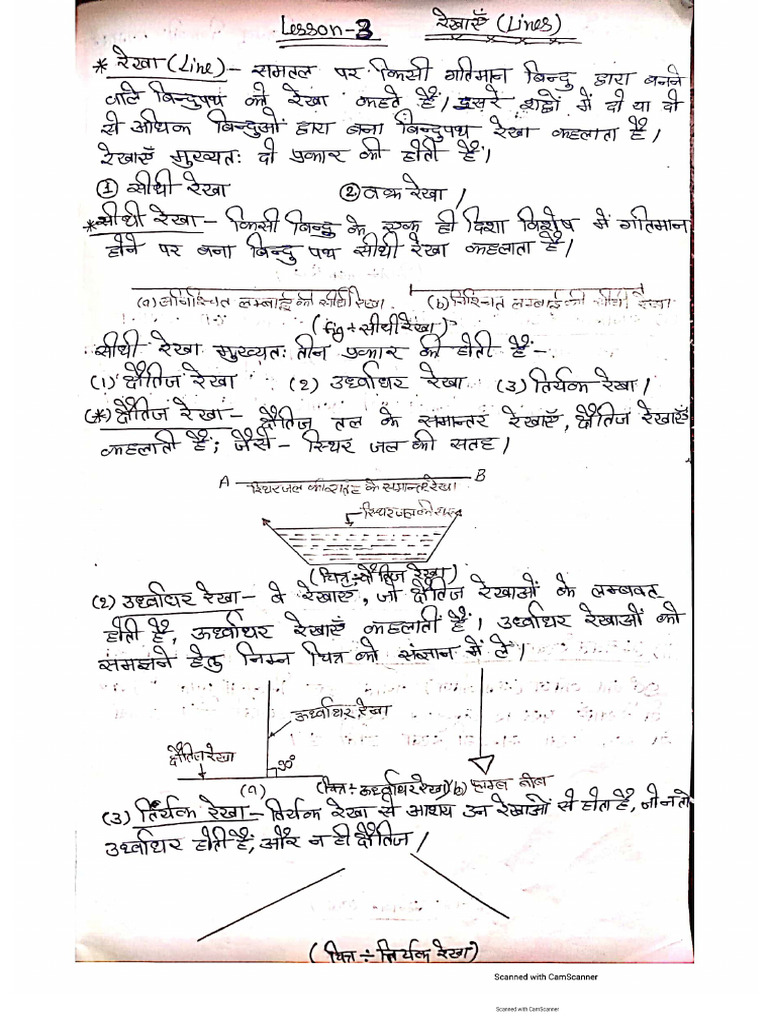 Lesson-3 रेखाएँ (Lines)
* रेखा (Line) - समतल पर किसी गतिमान बिन्दु द्वारा बनने
वाले बिन्दुपथ को रेखा कहते हैं। दूसरे शब्दों में दो या दो
से अधिक बिन्दुओं द्वारा बना बिन्दुपथ रेखा कहलाता है।
रेखाएँ मुख्यतः दो प्रकार की होती हैं।
① सीधी रेखा ② वक्र रेखा।
* सीधी रेखा - किसी बिन्दु के एक ही दिशा विशेष में गतिमान
होने पर बना बिन्दु पथ सीधी रेखा कहलाता है।
(a) लम्बाई की सीधी रेखा (b) निश्चित लम्बाई की सीधी रेखा
(fig ÷ सीधी रेखा)
सीधी रेखा मुख्यतः तीन प्रकार की होती हैं-
(1) क्षैतिज रेखा (2) उर्ध्वाधर रेखा (3) तिर्यक रेखा।
(*) क्षैतिज रेखा - क्षैतिज तल के समान्तर रेखाएँ, क्षैतिज रेखाएँ
कहलाती हैं; जैसे - स्थिर जल की सतह।
A B
स्थिर जल की सतह के समान्तर रेखा
स्थिर जल की सतह
(चित्र ÷ क्षैतिज रेखा)
(2) उर्ध्वाधर रेखा - वे रेखाएँ, जो क्षैतिज रेखाओं के लम्बवत
होती हैं, ऊर्ध्वाधर रेखाएँ कहलाती हैं। उर्ध्वाधर रेखाओं को
समझने हेतु निम्न चित्र को संज्ञान में लें।
ऊर्ध्वाधर रेखा
क्षैतिज रेखा 90°
(a) (चित्र ÷ ऊर्ध्वाधर रेखा) (b) बॉब
(3) तिर्यक रेखा - तिर्यक रेखा से आशय उन रेखाओं से होता है, जो न तो
उर्ध्वाधर होती हैं, और न ही क्षैतिज।
(चित्र ÷ तिर्यक रेखा)
Scanned with CamScanner
Scanned with CamScanner